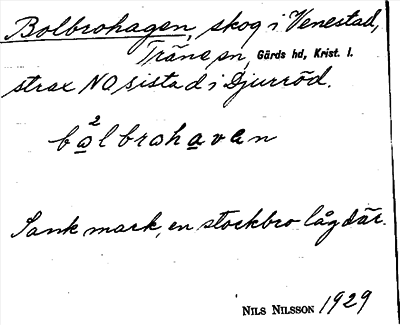 Bolbrohagen, skog i Venestad,
Träne sn, Gärds hd, Krist. l.
strax NO sistad i Djurröd.
bo̲²lbroha̲van
Sank mark, en stockbro låg där.
NILS NILSSON 1929